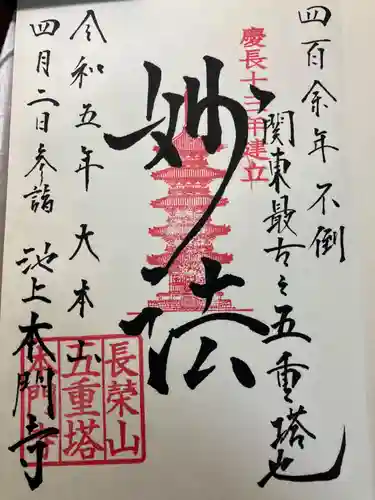 四百余年不倒
関東最古之五重塔也
慶長十三年建立
妙法
令和五年 大本山
四月二日参詣 池上本門寺
長榮山
五重塔
本門寺